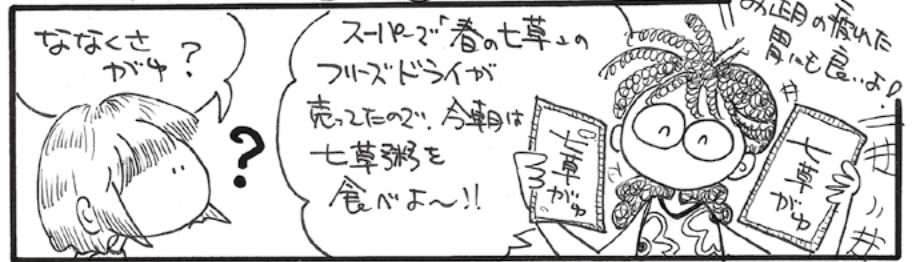 ななくさ
がゆ?
?
スーパーで「春の七草」の
フリーズドライが
売ってたので、今朝は
七草粥を
食べよ〜!!
七草がゆ
七草がゆ
お正月の疲れた
胃にも良いよ!